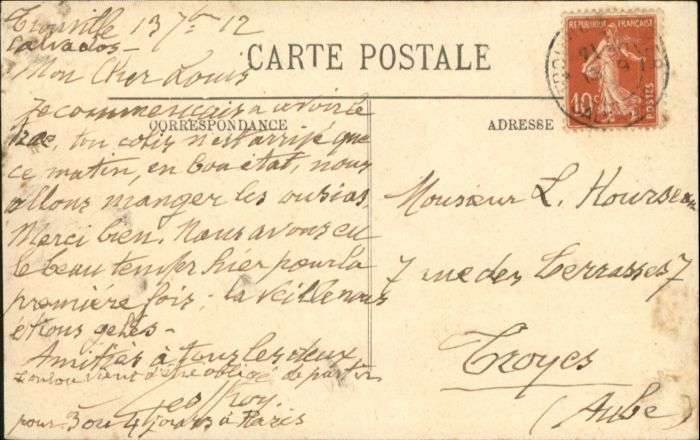 Trouville 13 7bre 12
Calvados -
Mon Cher Louis
CARTE POSTALE
REPUBLIQUE FRANÇAISE
10c
POSTES
CORRESPONDANCE
ADRESSE
je commençais a avoir le
trac, ton colis n'est arrivé que
ce matin, en bon état, nous
allons manger les
Merci bien. Nous avons eu
le beau temps hier pour la
première fois; la veille nous
étions gelés -
Amitiés à tous les deux
d'être obligé de partir
pour 3 ou 4 jours à Paris
Monsieur L. Hourseau
7 rue des Terrasses 7
Troyes
(Aube)